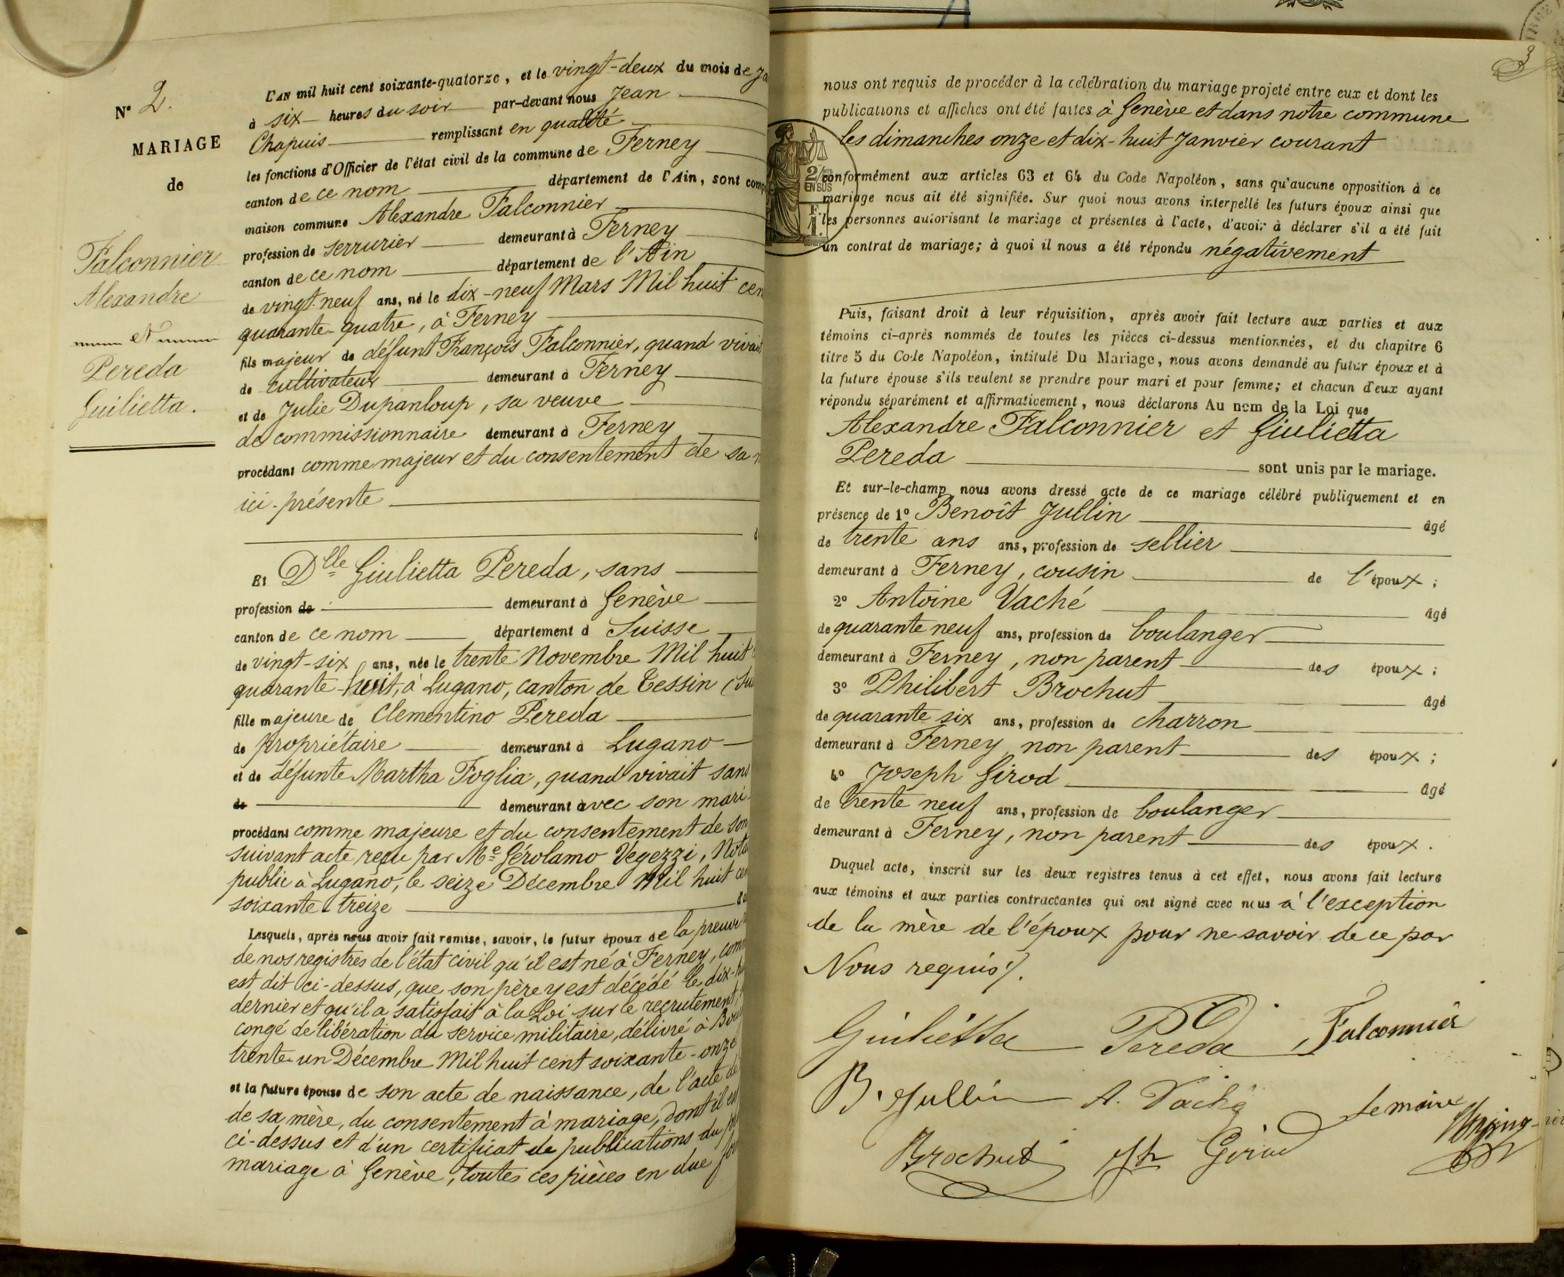 N° 2.
MARIAGE
de
Falconnier
Alexandre
et
Pereda
Guilietta.
L'AN mil huit cent soixante-quatorze, et le vingt-deux du mois de
à six heures du soir par-devant nous Jean
Chapuis remplissant en qualité
les fonctions d'Officier de l'état civil de la commune de Ferney
canton de ce nom département de l'Ain, sont
maison commune Alexandre Falconnier
profession de serrurier demeurant à Ferney
canton de ce nom département de l'Ain
de vingt neuf ans, né le dix-neuf Mars Mil huit cent
quarante-quatre, à Ferney
fils majeur de défunt François Falconnier, quand vivait
de cultivateur demeurant à Ferney
et de Julie Dupanloup, sa veuve
de commissionnaire demeurant à Ferney
procédant comme majeur et du consentement de sa
ici présente
Et Dlle Giulietta Pereda, sans
profession de demeurant à Genève
canton de ce nom département d Suisse
de vingt-six ans, née le trente Novembre Mil huit
quarante-huit, à Lugano, canton de Tessin
fille majeure de Clementino Pereda
de propriétaire demeurant à Lugano
et de défunte Martha Foglia, quand vivait sans
de demeurant avec son mari
procédant comme majeure et du consentement de son
suivant acte reçu par Me Gérolamo Vegezzi,
public à Lugano, le seize Décembre Mil huit
soixante treize
Lesquels, après nous avoir fait remise, savoir, le futur époux de la preuve
de nos registres de l'état civil qu'il est né à Ferney,
est dit ci-dessus, que son père y est décédé le
dernier et qu'il a satisfait à la Loi sur le recrutement
congé de libération du service militaire, délivré à
trente-un Décembre Mil huit cent soixante-onze
et la future épouse de son acte de naissance, de l'acte de
de sa mère, du consentement à mariage, dont il est
ci-dessus et d'un certificat de publications du
mariage à Genève, toutes ces pièces en due
3
nous ont requis de procéder à la célébration du mariage projeté entre eux et dont les
publications et affiches ont été faites à Genève et dans notre commune
les dimanches onze et dix-huit Janvier courant
conformément aux articles 63 et 64 du Code Napoléon, sans qu'aucune opposition à ce
mariage nous ait été signifiée. Sur quoi nous avons interpellé les futurs époux ainsi que
les personnes autorisant le mariage et présentes à l'acte, d'avoir à déclarer s'il a été fait
un contrat de mariage; à quoi il nous a été répondu négativement
Puis, faisant droit à leur réquisition, après avoir fait lecture aux parties et aux
témoins ci-après nommés de toutes les pièces ci-dessus mentionnées, et du chapitre 6
titre 5 du Code Napoléon, intitulé Du Mariage, nous avons demandé au futur époux et à
la future épouse s'ils veulent se prendre pour mari et pour femme; et chacun d'eux ayant
répondu séparément et affirmativement, nous déclarons Au nom de la Loi que
Alexandre Falconnier et Giulietta
Pereda sont unis par le mariage.
Et sur-le-champ nous avons dressé acte de ce mariage célébré publiquement et en
présence de 1° Benoît Jullin âgé
de trente ans ans, profession de sellier
demeurant à Ferney, cousin de l'époux;
2° Antoine Vaché âgé
de quarante neuf ans, profession de boulanger
demeurant à Ferney, non parent des époux;
3° Philibert Brochut âgé
de quarante six ans, profession de charron
demeurant à Ferney, non parent des époux;
4° Joseph Girod âgé
de trente neuf ans, profession de boulanger
demeurant à Ferney, non parent des époux.
Duquel acte, inscrit sur les deux registres tenus à cet effet, nous avons fait lecture
aux témoins et aux parties contractantes qui ont signé avec nous à l'exception
de la mère de l'époux pour ne savoir de ce par
Nous requis.
Giulietta Pereda Falconnier
B. Jullin A. Vaché Le maire
Brochut Jh Girod